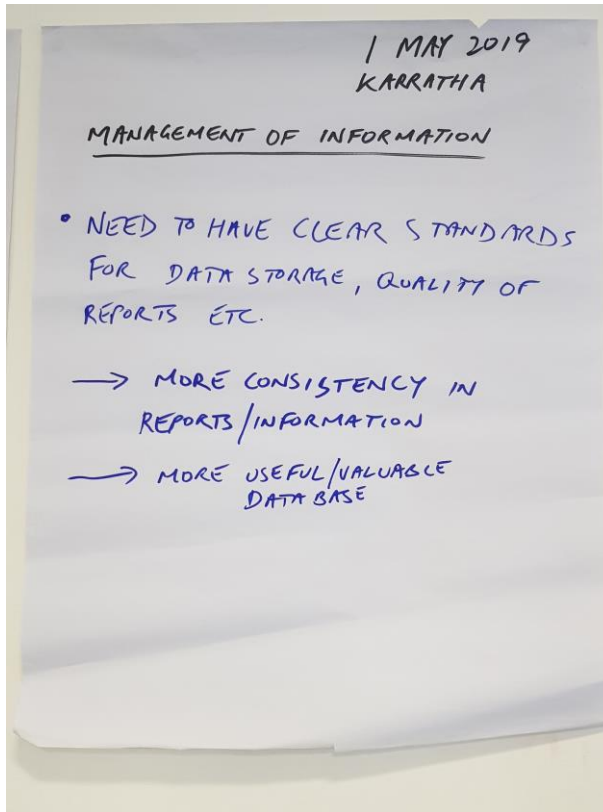 1 MAY 2019
KARRATHA
MANAGEMENT OF INFORMATION
• NEED TO HAVE CLEAR STANDARDS
FOR DATA STORAGE, QUALITY OF
REPORTS ETC.
→ MORE CONSISTENCY IN
REPORTS/INFORMATION
→ MORE USEFUL/VALUABLE
DATABASE